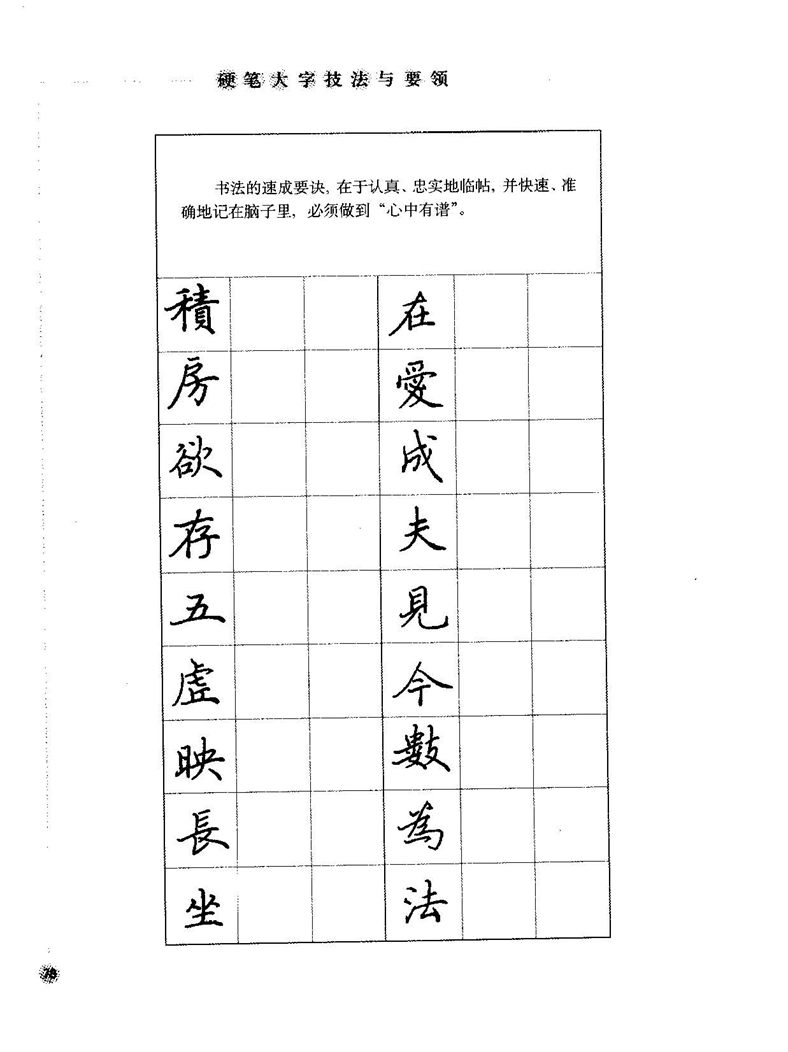 硬笔大字技法与要领
书法的速成要诀，在于认真、忠实地临帖，并快速、准
确地记在脑子里，必须做到“心中有谱”。
積 在
房 愛
欲 成
存 夫
五 見
虚 今
映 數
長 為
坐 法